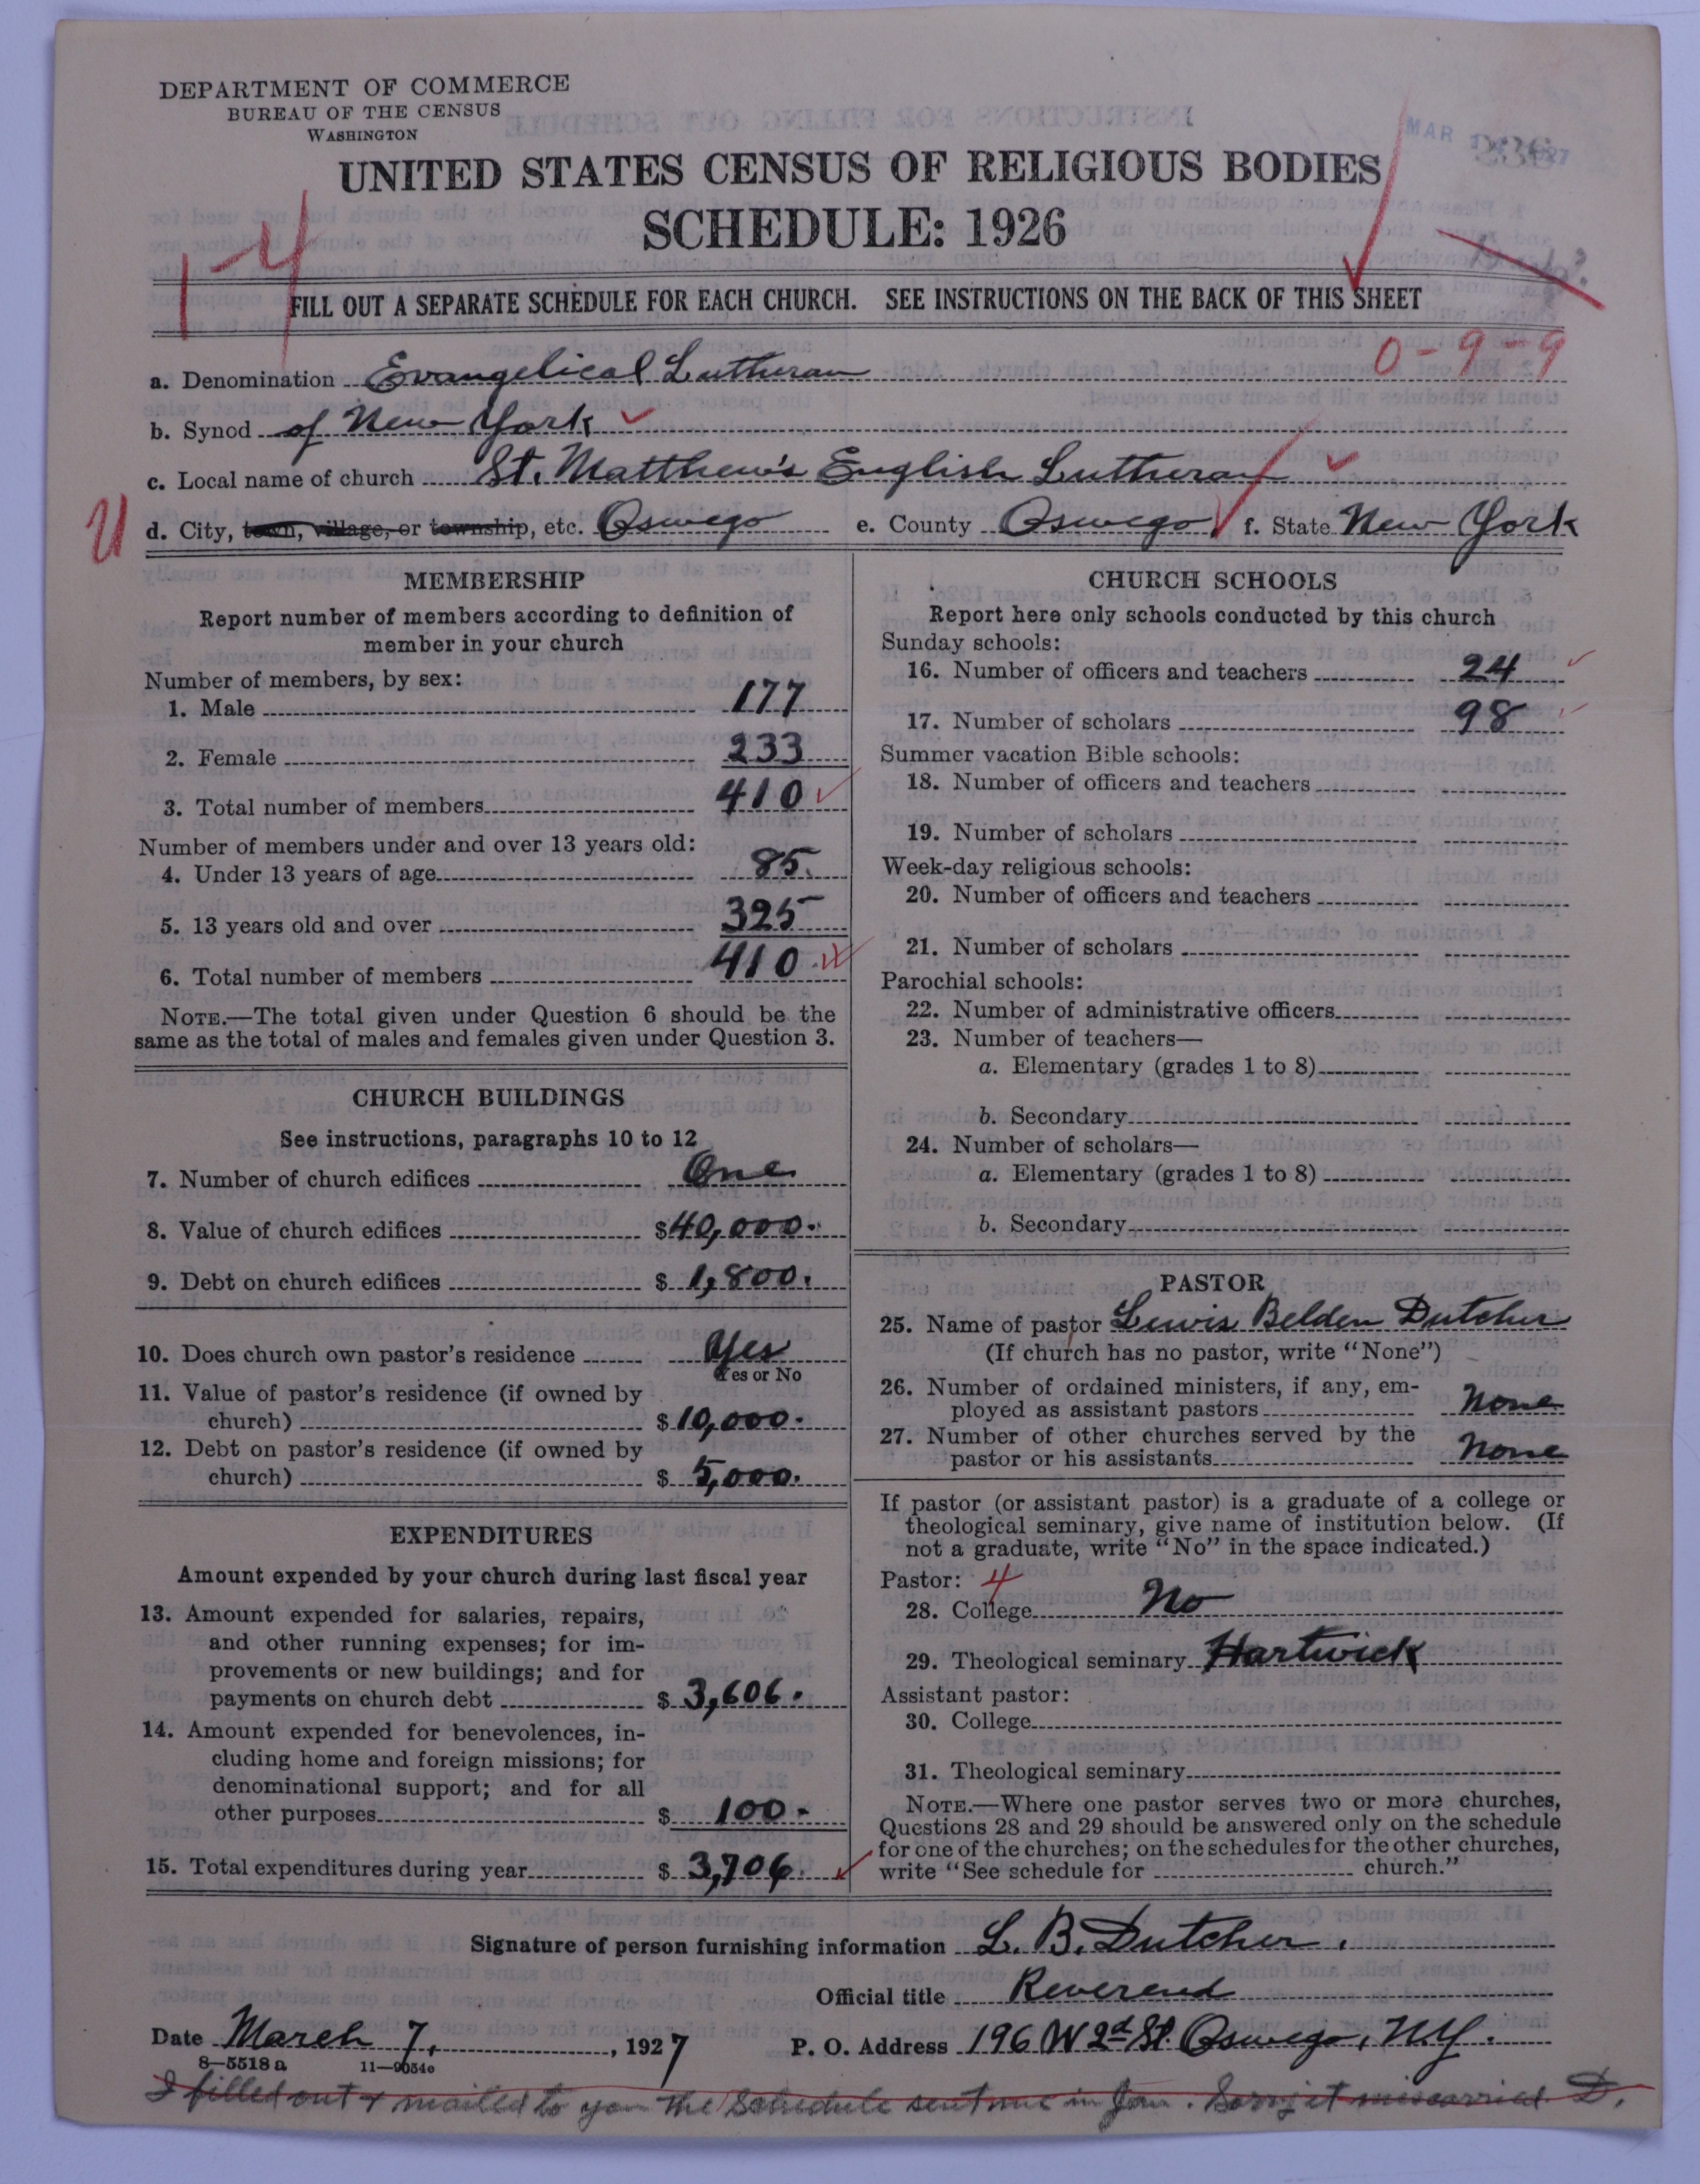 DEPARTMENT OF COMMERCE
BUREAU OF THE CENSUS
WASHINGTON
UNITED STATES CENSUS OF RELIGIOUS BODIES
SCHEDULE: 1926
FILL OUT A SEPARATE SCHEDULE FOR EACH CHURCH. SEE INSTRUCTIONS ON THE BACK OF THIS SHEET
0-9-9
a. Denomination Evangelical Lutheran
b. Synod of New York
c. Local name of church St. Matthew's English Lutheran
d. City, town, village, or township, etc. Oswego e. County Oswego f. State New York
MEMBERSHIP
Report number of members according to definition of
member in your church
Number of members, by sex:
1. Male 177
2. Female 233
3. Total number of members 410
Number of members under and over 13 years old:
4. Under 13 years of age 85.
5. 13 years old and over 325
6. Total number of members 410
NOTE.—The total given under Question 6 should be the
same as the total of males and females given under Question 3.
CHURCH BUILDINGS
See instructions, paragraphs 10 to 12
7. Number of church edifices One
8. Value of church edifices $40,000.
9. Debt on church edifices $ 1,800.
10. Does church own pastor's residence Yes
Yes or No
11. Value of pastor's residence (if owned by
church) $10,000.
12. Debt on pastor's residence (if owned by
church) $ 5,000.
EXPENDITURES
Amount expended by your church during last fiscal year
13. Amount expended for salaries, repairs,
and other running expenses; for im-
provements or new buildings; and for
payments on church debt $ 3,606.
14. Amount expended for benevolences, in-
cluding home and foreign missions; for
denominational support; and for all
other purposes $ 100-
15. Total expenditures during year $ 3,706.
CHURCH SCHOOLS
Report here only schools conducted by this church
Sunday schools:
16. Number of officers and teachers 24
17. Number of scholars 98
Summer vacation Bible schools:
18. Number of officers and teachers
19. Number of scholars
Week-day religious schools:
20. Number of officers and teachers
21. Number of scholars
Parochial schools:
22. Number of administrative officers
23. Number of teachers—
a. Elementary (grades 1 to 8)
b. Secondary
24. Number of scholars—
a. Elementary (grades 1 to 8)
b. Secondary
PASTOR
25. Name of pastor Lewis Belden Dutcher
(If church has no pastor, write "None")
26. Number of ordained ministers, if any, em-
ployed as assistant pastors None
27. Number of other churches served by the
pastor or his assistants None
If pastor (or assistant pastor) is a graduate of a college or
theological seminary, give name of institution below. (If
not a graduate, write "No" in the space indicated.)
Pastor: 4
28. College No
29. Theological seminary Hartwick
Assistant pastor:
30. College
31. Theological seminary
NOTE.—Where one pastor serves two or more churches,
Questions 28 and 29 should be answered only on the schedule
for one of the churches; on the schedules for the other churches,
write "See schedule for church."
Signature of person furnishing information L. B. Dutcher.
Official title Reverend
Date March 7, 1927 P. O. Address 196 W 2d St. Oswego, N.Y.
8—5518 a 11—9054e
I filled out & mailed to you the schedule sent me in Jan. Sorry it miscarried. D.